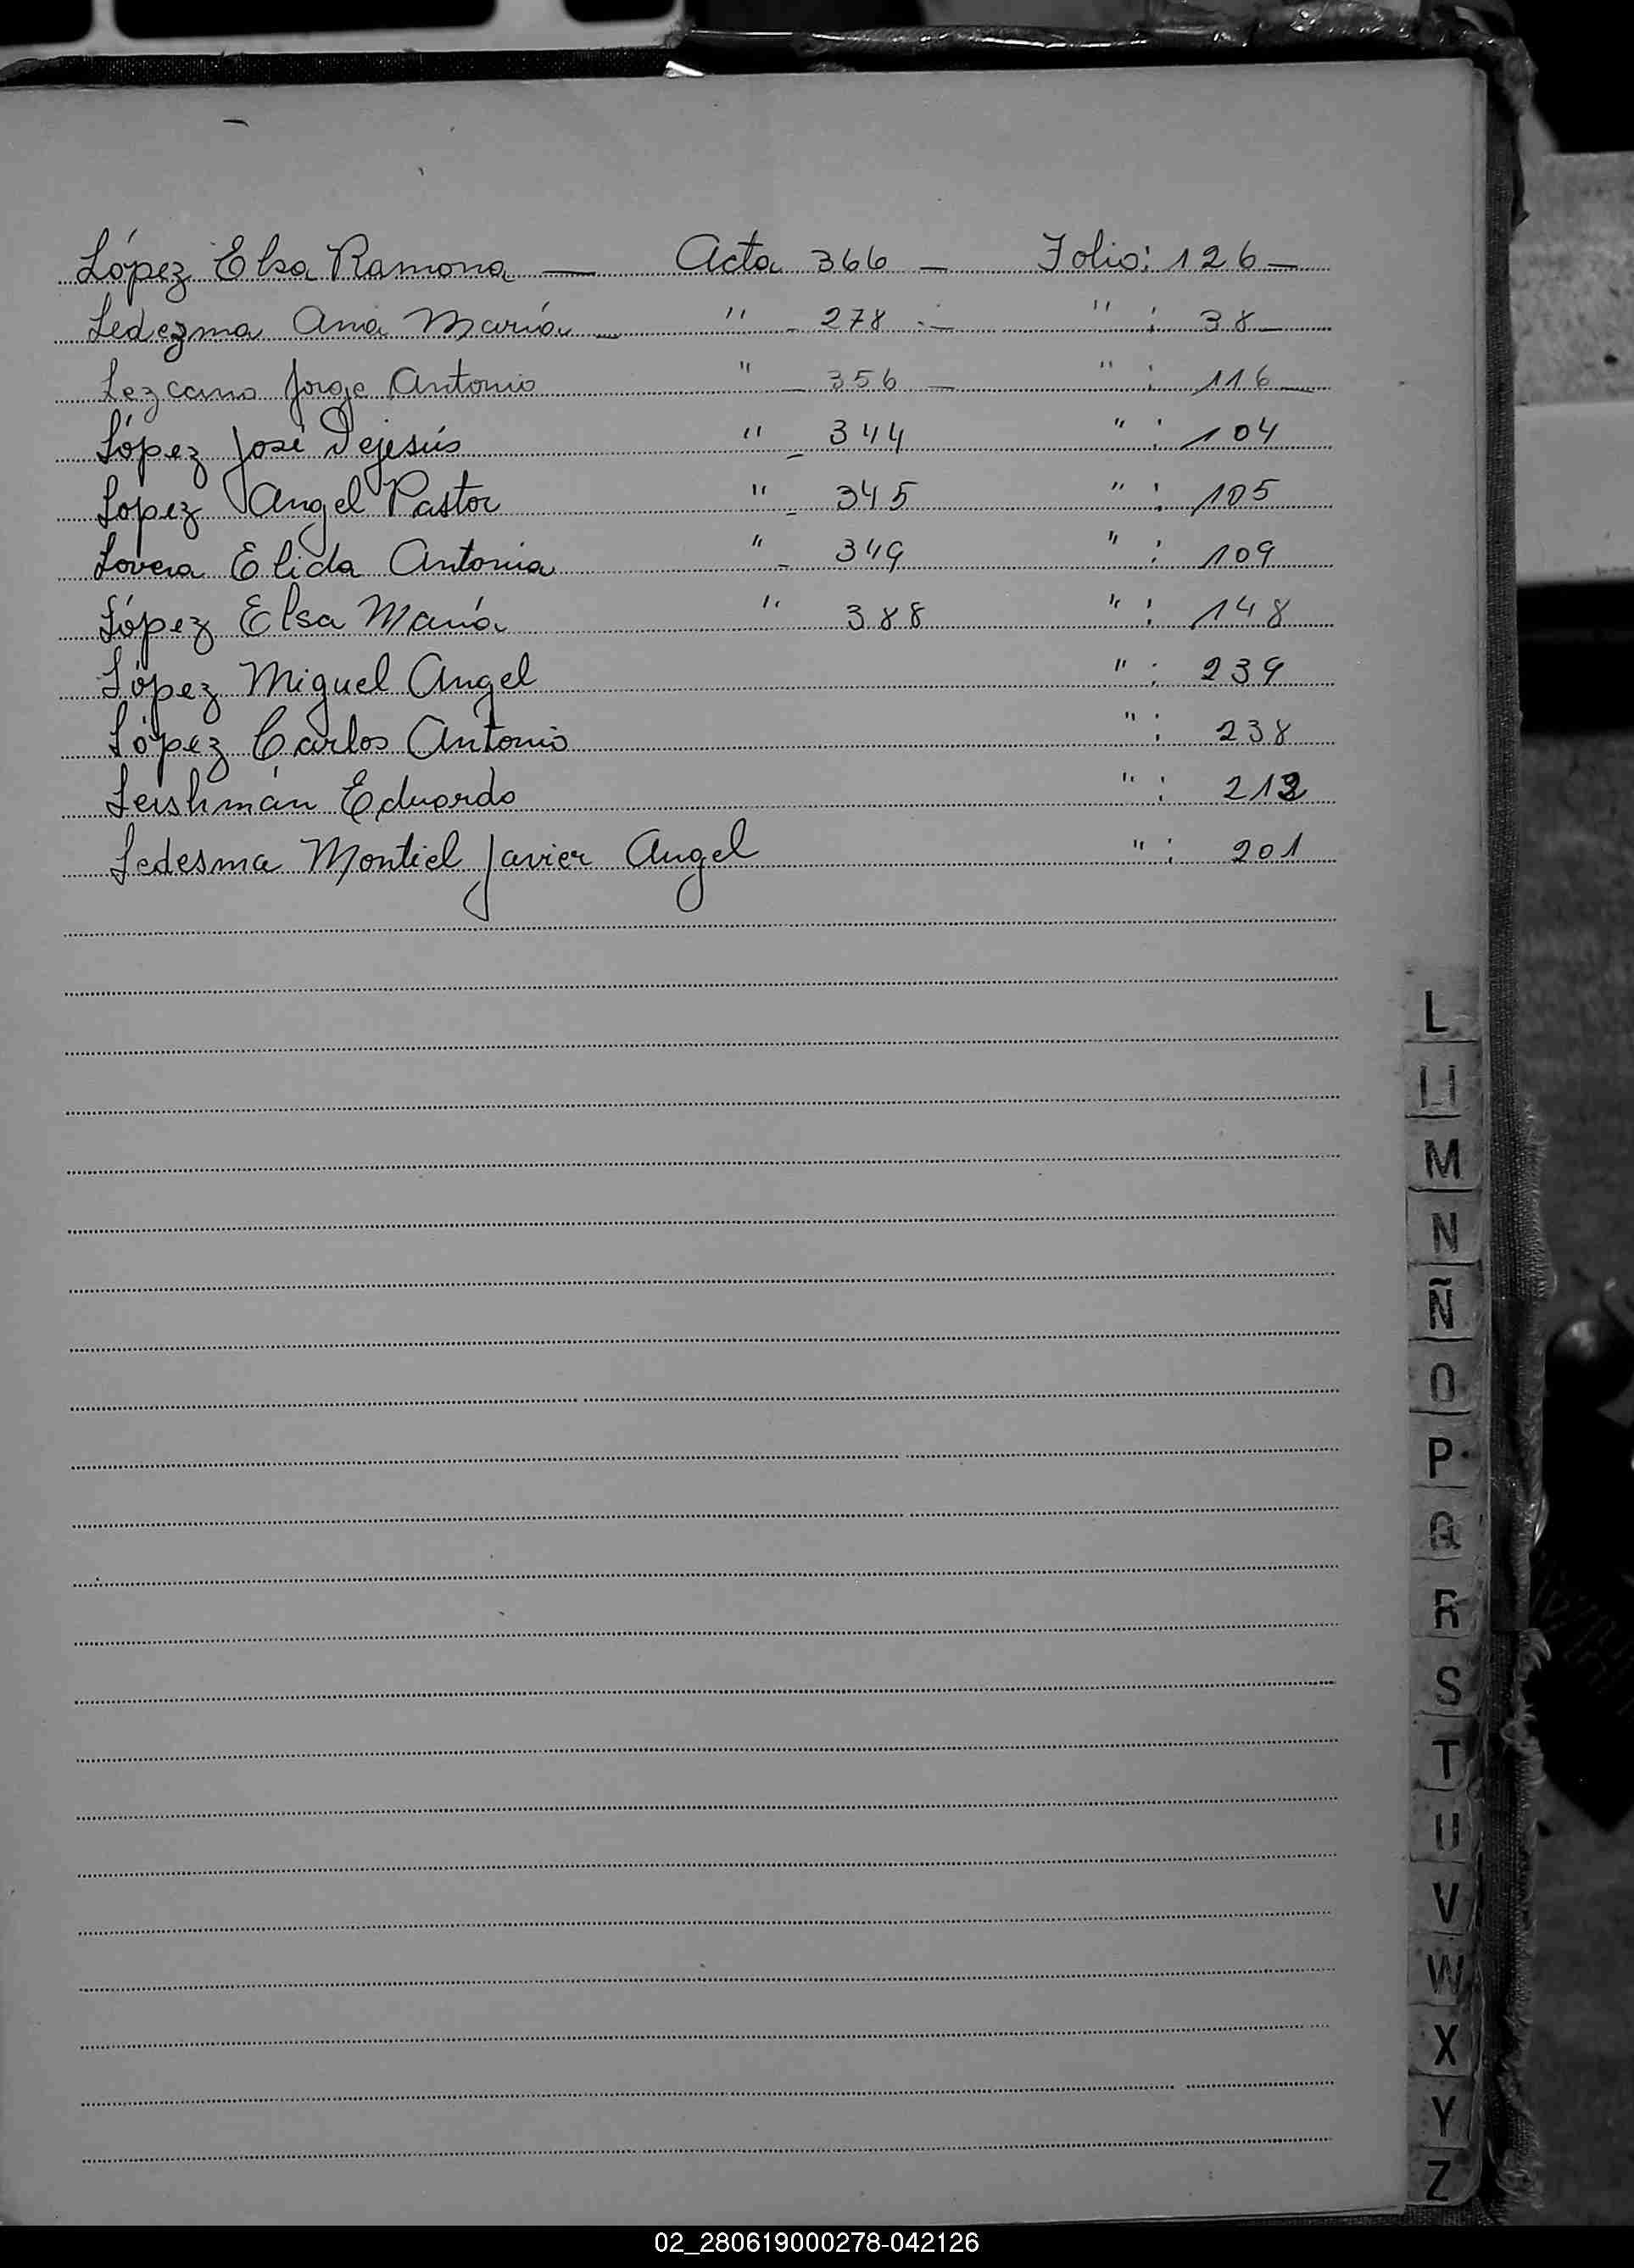 López Elsa Ramona — Acta 366 — Folio: 126 —
Ledezma Ana María — " - 278 . — " : 38 —
Lezcano Jorge Antonio " - 356 — " : 116 —
López José Dejesús " - 344 " : 104
Lopez Angel Pastor " - 345 " : 105
Lovera Elida Antonia " - 349 " : 109
López Elsa María " 388 " : 148
López Miguel Angel " : 239
López Carlos Antonio " : 238
Leishmán Eduardo " : 212
Ledesma Montiel Javier Angel " : 201
L
Ll
M
N
Ñ
O
P
Q
R
S
T
U
V
W
X
Y
Z
02_280619000278-042126